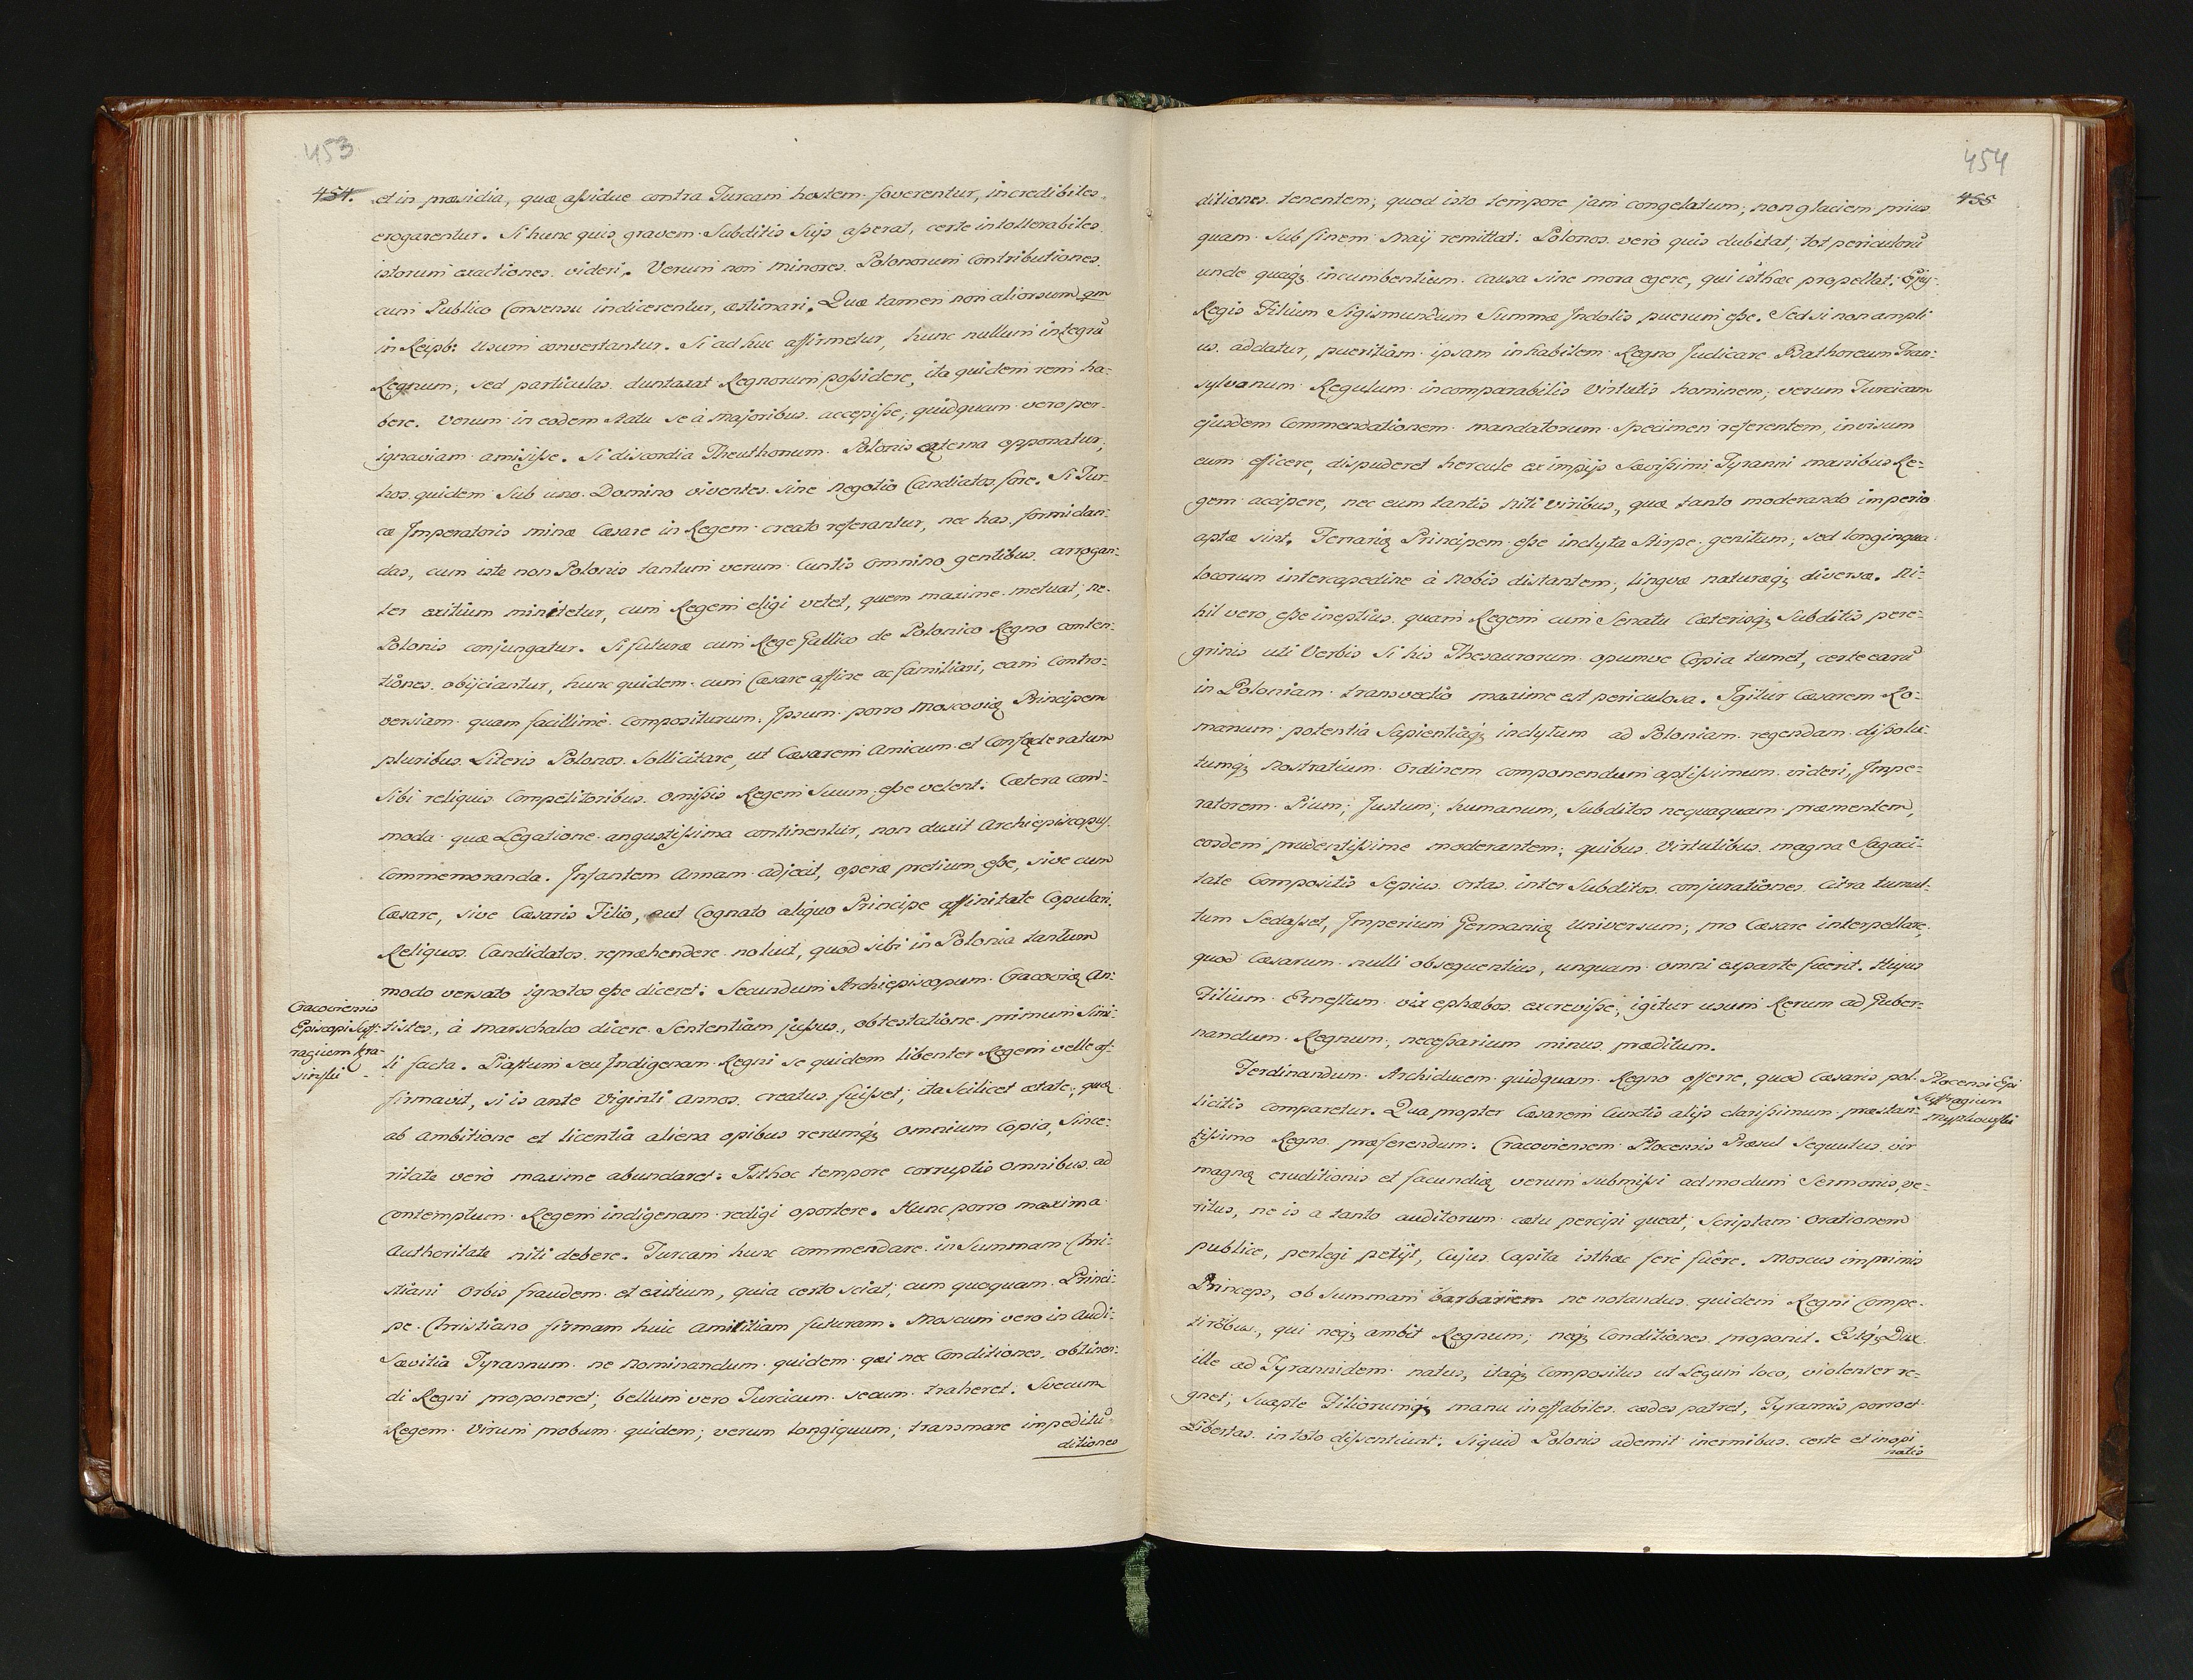 453
454.
et in præsidia, quæ aßidue contra Turcam hostem foverentur, incredibiles
erogarentur. Si hunc quis gravem Subditis Suis aßerat, certe intollerabiles
istorum exactiones videri. Verum non minores Polonorum Contributiones
cum Publico Consensu indicerentur, æstimari. Quæ tamen non aliorsum qm
in Reipb: Usum convertantur. Si ad huc affirmetur, hunc nullum integrũ
Regnum, sed particulas duntaxat Regnorum poßidere, ita quidem rem ha-
bere. Verum in eodem Statu se à Majoribus accepiße; quidquam vero per
ignaviam amisiße. Si discordia Theuthonum Polonis externa opponatur,
hos quidem Sub uno Domino viventes sine Negotio Candiatos fore. Si Tur-
cæ Imperatoris minæ Cæsare in Regem creato referantur, nec has formidan-
das, cum iste non Polonis tantum verum Cuntis omnino gentibus arrogan-
ter exitium minitetur, cum Regem eligi vetet, quem maxime metuat, ne
Polonis conjungatur. Si futuræ cum Rege Gallico de Polonico Regno conten-
tiones obijciantur, hunc quidem cum Cæsare affine ac familiari, eam Contro-
versiam quam facillime Compositurum. Ipsum porro Moscoviæ Principem
pluribus Literis Polonos Sollicitare, ut Cæsarem Amicum et Confæderatum
Sibi reliquis Competitoribus omißis Regem Suum eße velent. Cætera Com-
moda quæ Legatione angustißima continentur, non duxit Archiepiscopus
Commemoranda. Infantem Annam adjecit, operæ pretium eße, sive cum
Cæsare, sive Cæsaris Filio, aut Cognato aliquo Principe affinitate Copulari.
Reliquos Candidatos repræhendere noluit, quod sibi in Polonia tantum
modo versato ignotos eße diceret. Secundum Archiepiscopum Cracoviæ An-
tistes, à Marschalco dicere Sententiam jußus, obtestatione primum Simi-
li facta. Piastum seu Indigenam Regni se quidem libenter Regem velle af-
firmavit, si is ante Viginti Annos creatus fuißet, ita Scilicet ætate, quæ
ab Ambitione et licentia aliena opibus rerumq; omnium Copia, Since-
ritate verò maxime abundaret. Isthoc tempore corruptis omnibus ad
Contemptum Regem indigenam redigi oportere. Hunc porro maxima
Authoritate niti debere. Turcam hunc commendare in Summam Chri-
stiani Orbis fraudem et exitium, quia certo sciat, cum quoquam Princi-
pe Christiano firmam huic Amicitiam futuram. Moscum vero in Audi-
Sævitia Tyrannum ne Nominandum quidem qui nec Conditiones obtinen-
di Regni proponeret; bellum vero Turcicum secum traheret. Suecum
Regem Virum probum quidem; verum longiquum; transmare impeditũ
ditiones
Cracoviensis
Episcopi Suff-
ragium Kra-
sinski
454
455
ditiones tenentem; quod isto tempore jam congelatum, non glaciem prius
quam Sub finem Maij remittat. Polonos verò quis dubitat, tot periculorũ
unde quaq; incumbentium causa sine mora egere, qui isthæc propellat. Ejus-
Regis Filium Sigismundum Summæ Indolis puerum eße. Sed si non ampli
us addatur, pueritiam ipsam inhabilem Regno Judicare Bathoreum Tran-
sylvanum Regulum incomparabilis Virtutis hominem; verum Turcicam
ejusdem Commendationem mandatorum specimen referentem, invisum
eum efficere, dispuderet hercule ex impijs Sævißimi Tyranni manibus Re-
gem accipere, nec eum tantis Niti Viribus, quæ tanto moderando imperio
aptæ sint. Ferrariæ Principem eße inclyta Stirpe genitum; sed longinqua
locorum intercapedine à Nobis distantem, linguæ naturæq; diversæ. Ni-
hil vero eße ineptius quam Regem cum Senatu Cæterisq; Subditis pere-
grinis uti Verbis Si his Thesaurorum opumve Copia tumet, certe earũ
in Poloniam transvectio maxime est periculosa. Igitur Cæsarem Ro-
manum potentia Sapientiaq; inclytum ad Poloniam regendam dißolu-
tumq; Nostratium Ordinem componendum aptißimum videri, Impe-
ratorem Pium, Justum, humanum, Subditos nequaquam præmentem,
eosdem prudentißime moderantem; quibus Virtutibus magna Sagaci-
tate Compositis Sepius ortas inter Subditos conjurationes Citra tumul-
tum Sedaßet, Imperium Germaniæ Universum, pro Cæsare interpellare,
quod Cæsarum nulli obsequentius, unquam omni ex parte fuerit. Hujus
Filium Ernestum vix ephæbos excreviße, igitur usum Rerum ad Guber-
nandum Regnum, neceßarium minus præditum.
Ferdinandum Archiducem quidquam Regno offerre, quod Cæsaris pol-
licitis comparetur. Qua propter Cæsarem Cunctis alijs clarißimum præstan-
tißimo Regno præferendum. Cracoviensem Plocensis Præsul Sequutus vir
magnæ eruditionis et facundiæ verum submißi admodum Sermonis, ve-
ritus, ne is a tanto auditorum cætu percipi queat, Scriptam Orationem
publice, perlegi petijt, Cujus Capita isthæc ferè fuêre. Moscus imprimis
Princeps, ob Summam barbariem ne notandus quidem Regni Compe-
titoribus, qui neq; ambit Regnum; neq; Conditiones proponit. Estq; Dux
ille ad Tyrannidem natus, itaq; Compositus ut Legum loco, violenter re-
gnet, Suapte Filiorumq; manu ineffabiles cædes patret, Tyrannis porro et
Libertas in toto dißentiunt. Siquid Polonis ademit inermibus certe et inopi
natis
Plocensis Epi
Suffragium
Myszkowski